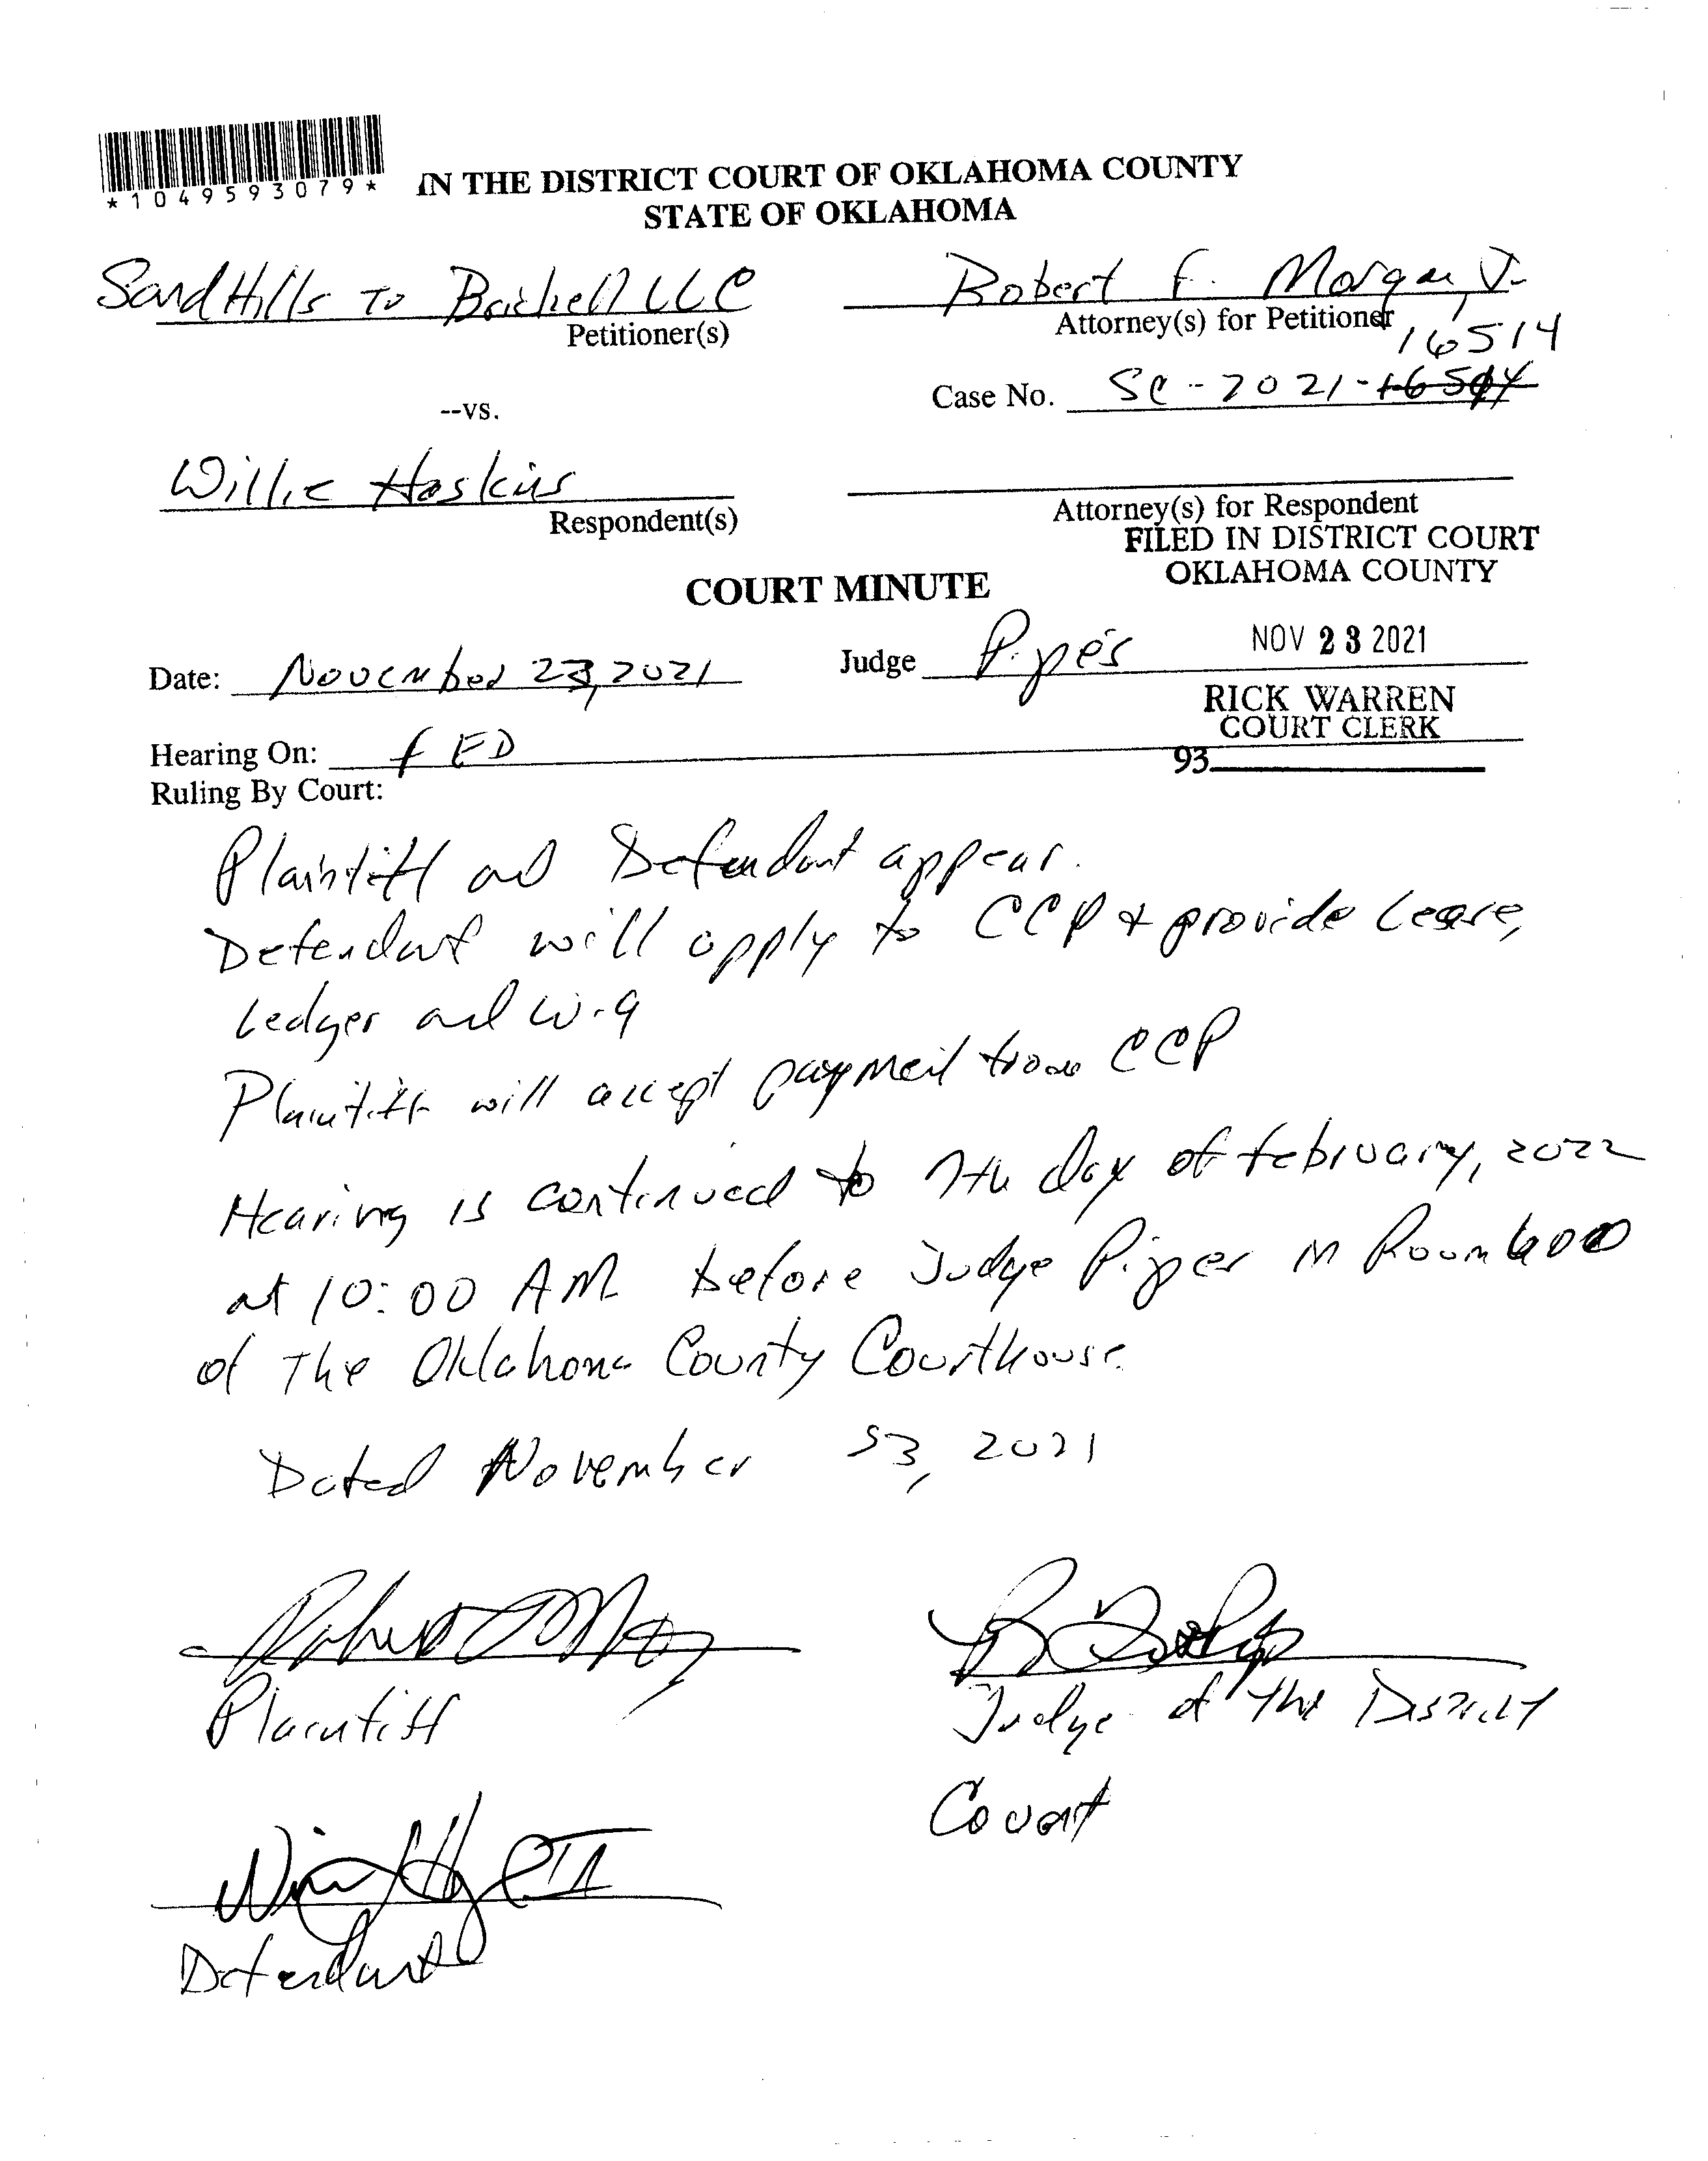 *1049593079*
IN THE DISTRICT COURT OF OKLAHOMA COUNTY
STATE OF OKLAHOMA
Sand Hills To Brickell LLC
Petitioner(s)
Robert F. Morgan, Jr.
Attorney(s) for Petitioner
16514
Case No. SC-2021-
--vs.
Willie Hoskins
Respondent(s)
Attorney(s) for Respondent
FILED IN DISTRICT COURT
OKLAHOMA COUNTY
COURT MINUTE
NOV 23 2021
Date: November 23, 2021
Judge Piper
RICK WARREN
COURT CLERK
Hearing On: FED
93
Ruling By Court:
Plaintiff and Defendant appear.
Defendant will apply to CCP & provide Lease,
Ledger and W-9
Plaintiff will accept payment from CCP
Hearing is continued to 7th day of February, 2022
at 10:00 AM before Judge Piper in Room 600
of The Oklahoma County Courthouse.
Dated November 23, 2021
Plaintiff
Judge of the District
Court
Defendant